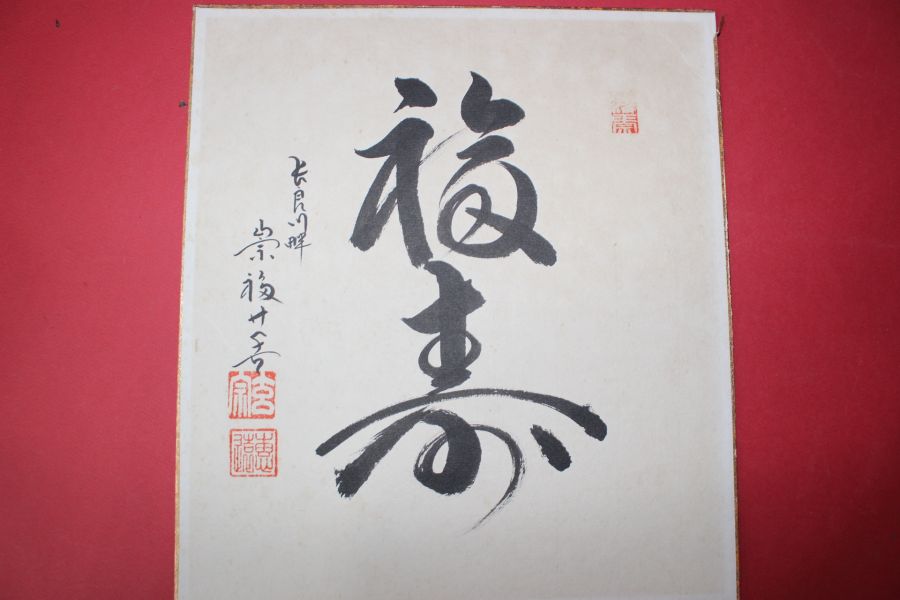 福寿
長良川畔
崇福廿